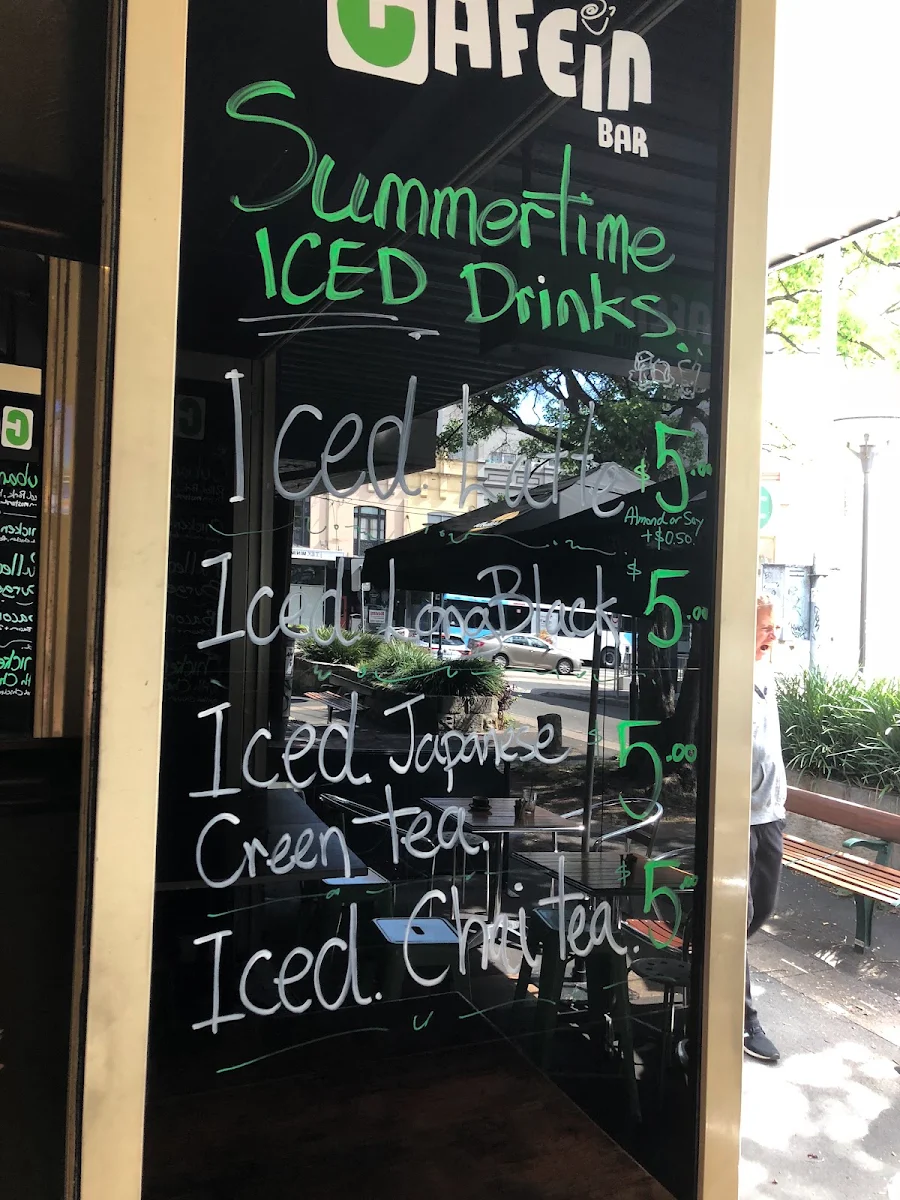 CAFEIN
BAR
Summertime
ICED Drinks
Iced Latte $5.00
Almond or Soy
+$0.50!
Iced Long Black $5.00
Iced Japanese $5.00
Green tea.
Iced Chai tea. $5.00